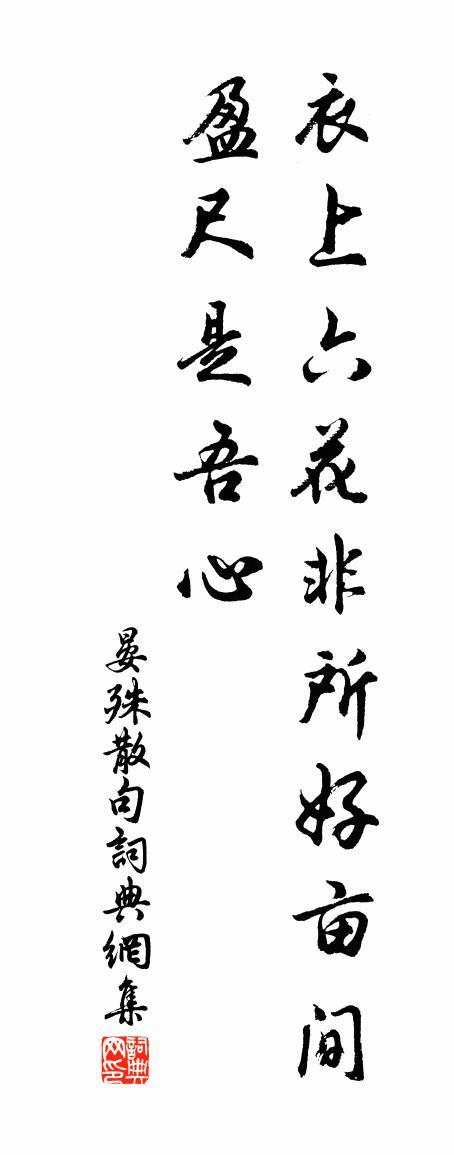 衣上六花非所好亩间
盈尺是吾心
晏殊散句詞典網集
詞典网印